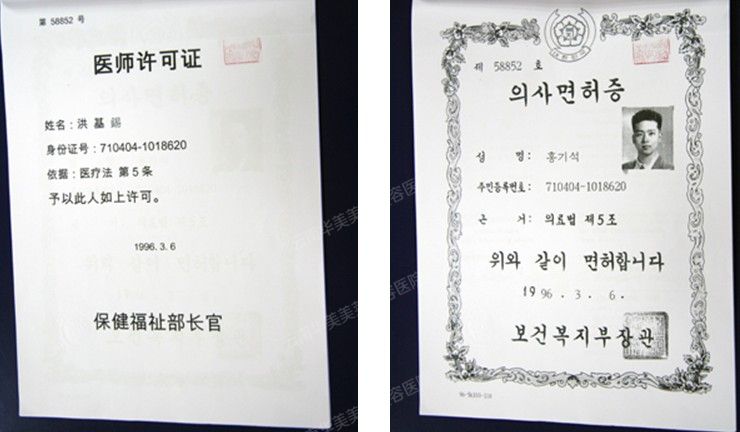 第 58852 号
医师许可证
姓名：洪 基 錫
身份证号：710404-1018620
依据：医疗法 第 5 条
予以此人如上许可。
1996. 3. 6
保健福祉部长官
제 58852 호
의사면허증
성 명： 홍기석
주민등록번호： 710404-1018620
근 거： 의료법 제5조
위와 같이 면허합니다
19 96 . 3 . 6 .
보건복지부장관